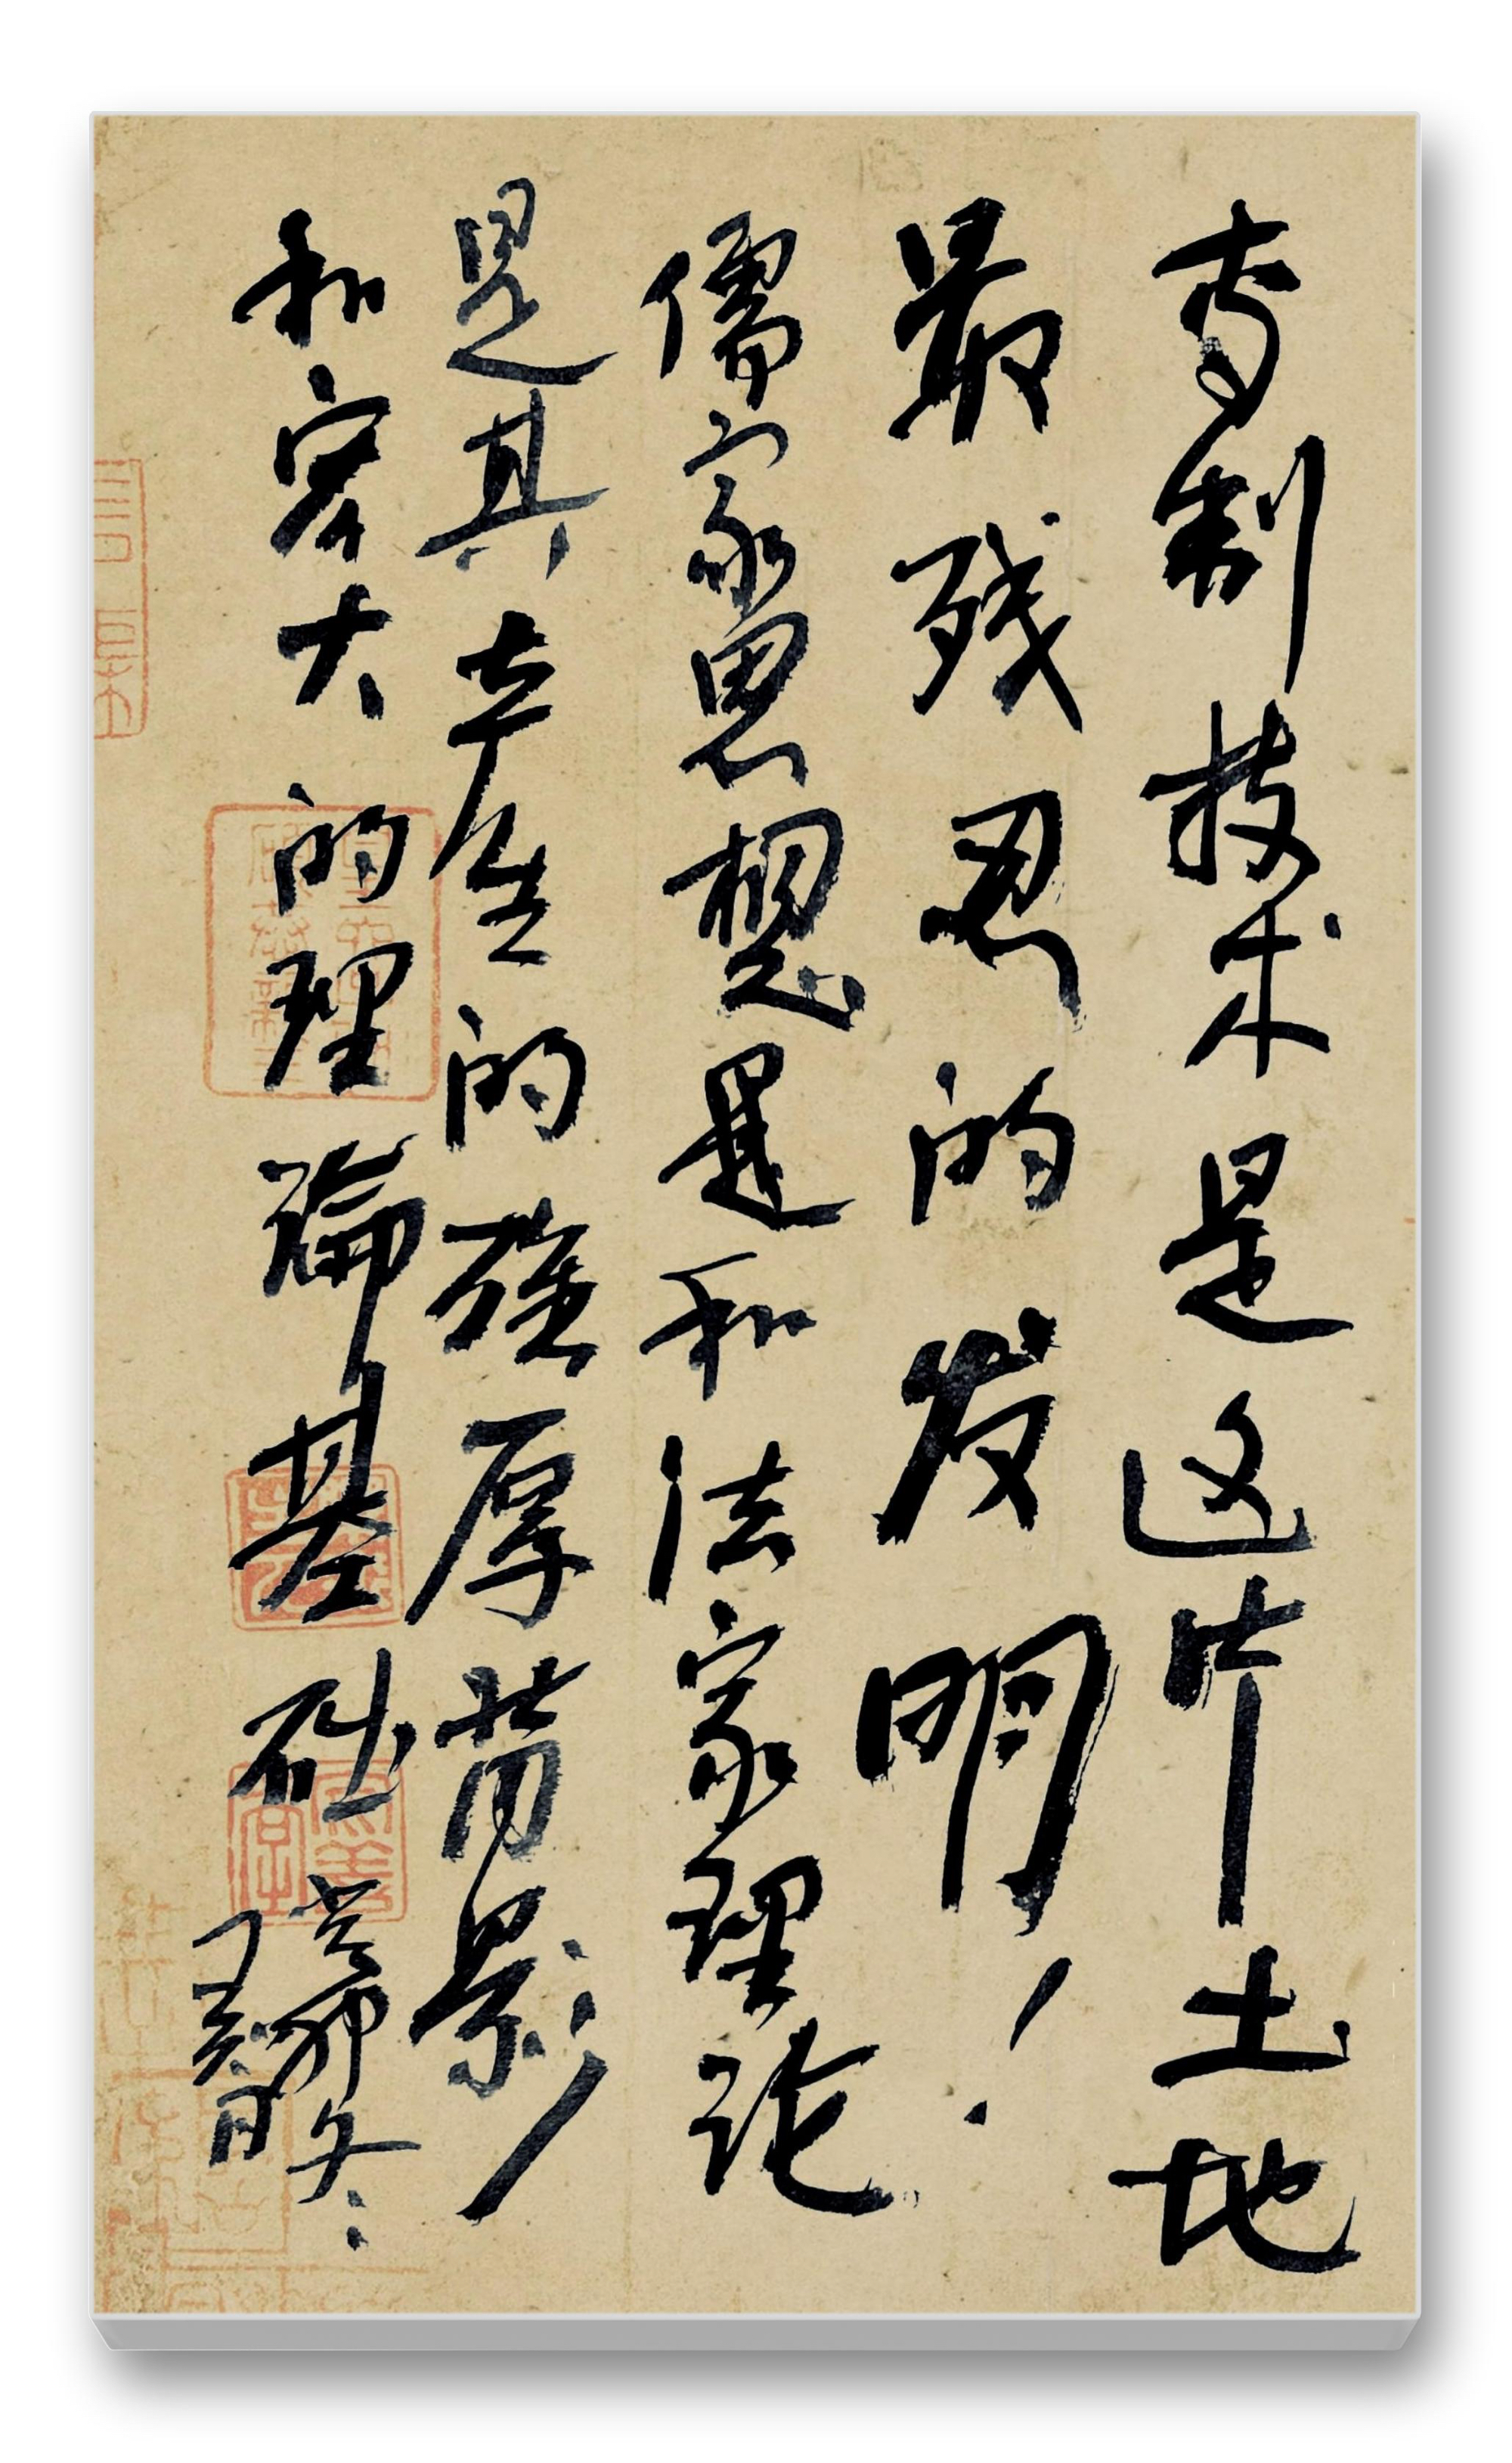 专制技术是这片土地
最残忍的发明！
儒家思想是和法家理论
是其产生的强厚背影
和宏大的理論基础
癸卯冬